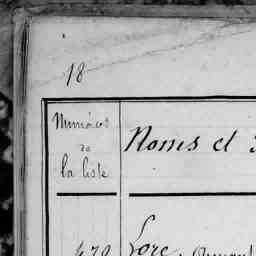 18
Numéros
de
la liste
Noms et
479 Lore,